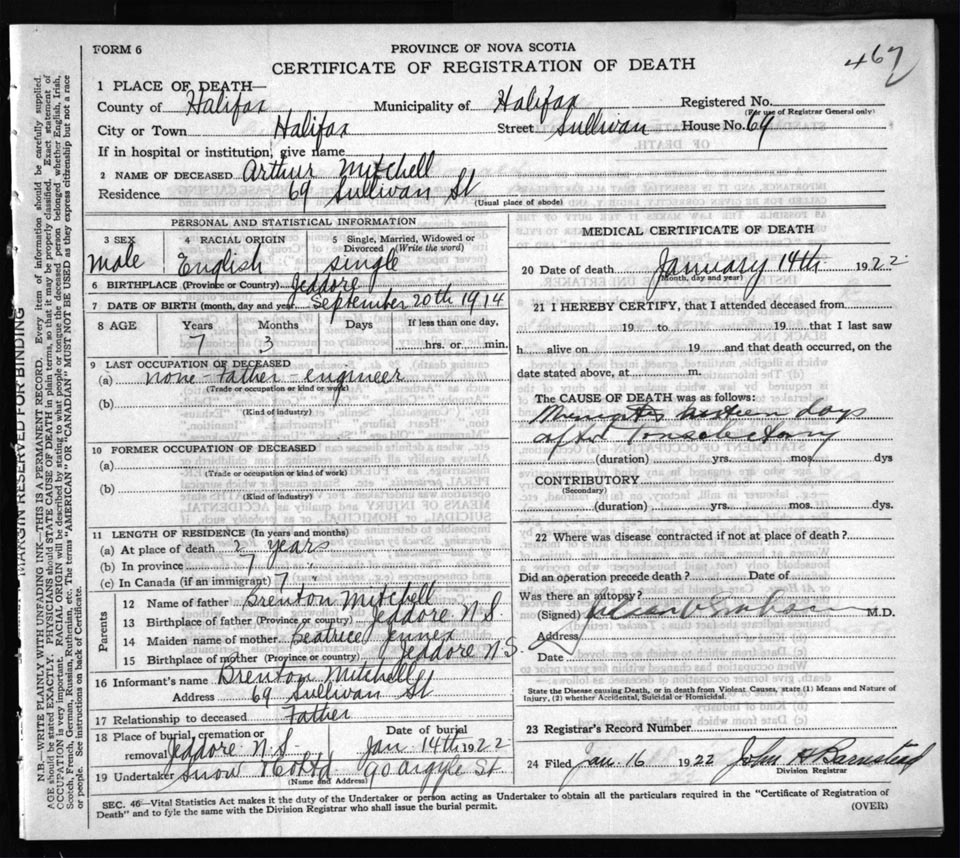 FORM 6
PROVINCE OF NOVA SCOTIA
CERTIFICATE OF REGISTRATION OF DEATH
467
1 PLACE OF DEATH—
County of Halifax Municipality of Halifax Registered No.
(For use of Registrar General only)
City or Town Halifax Street Sullivan House No. 69
If in hospital or institution, give name
2 NAME OF DECEASED Arthur Mitchell
Residence 69 Sullivan St
(Usual place of abode)
PERSONAL AND STATISTICAL INFORMATION
3 SEX 4 RACIAL ORIGIN 5 Single, Married, Widowed or Divorced (Write the word)
male English single
6 BIRTHPLACE (Province or Country) Jeddore
7 DATE OF BIRTH (month, day and year) September 20th 1914
8 AGE Years Months Days If less than one day,
7 3 hrs. or min.
9 LAST OCCUPATION OF DECEASED
(a) none - Father - engineer
(Trade or occupation or kind of work)
(b)
(Kind of industry)
10 FORMER OCCUPATION OF DECEASED
(a)
(Trade or occupation or kind of work)
(b)
(Kind of industry)
11 LENGTH OF RESIDENCE (In years and months)
(a) At place of death years
(b) In province 7 "
(c) In Canada (if an immigrant) 7 "
Parents
12 Name of father Brenton Mitchell
13 Birthplace of father (Province or country) Jeddore N.S
14 Maiden name of mother Beatrice Jennex
15 Birthplace of mother (Province or country) Jeddore N.S.
16 Informant's name Brenton Mitchell
Address 69 Sullivan St
17 Relationship to deceased Father
18 Place of burial, cremation or removal Jeddore N.S Date of burial Jan 14th 1922
19 Undertaker Snow & Co Ltd 90 Argyle St.
(Name and Address)
MEDICAL CERTIFICATE OF DEATH
20 Date of death January 14th 1922
(Month, day and year)
21 I HEREBY CERTIFY, that I attended deceased from
19 to 19 that I last saw
h alive on 19 and that death occurred, on the
date stated above, at m.
The CAUSE OF DEATH was as follows:
days
after
(duration) yrs. mos. dys
CONTRIBUTORY
(Secondary)
(duration) yrs. mos. dys.
22 Where was disease contracted if not at place of death?
Did an operation precede death? Date of
Was there an autopsy?
(Signed) M.D.
Address
Date
State the Disease causing Death, or in death from Violent Causes, state (1) Means and Nature of
Injury, (2) whether Accidental, Suicidal or Homicidal.
23 Registrar's Record Number
24 Filed Jan. 16 1922 John H Barnstead
Division Registrar
SEC. 46—Vital Statistics Act makes it the duty of the Undertaker or person acting as Undertaker to obtain all the particulars required in the "Certificate of Registration of
Death" and to fyle the same with the Division Registrar who shall issue the burial permit.
(OVER)
MARGIN RESERVED FOR BINDING
N.B.—WRITE PLAINLY WITH UNFADING INK—THIS IS A PERMANENT RECORD. Every item of information should be carefully supplied.
AGE should be stated EXACTLY. PHYSICIANS should STATE CAUSE OF DEATH in plain terms, so that it may be properly classified. Exact statement of
OCCUPATION is very important. RACIAL ORIGIN will be described by stating to what people or tongue the deceased person belonged, whether English, Irish,
Scotch, French, German, Russian, Ruthenian, etc. The terms "AMERICAN" or "CANADIAN" MUST NOT BE USED as they express citizenship but not a race
or people. See instructions on back of Certificate.